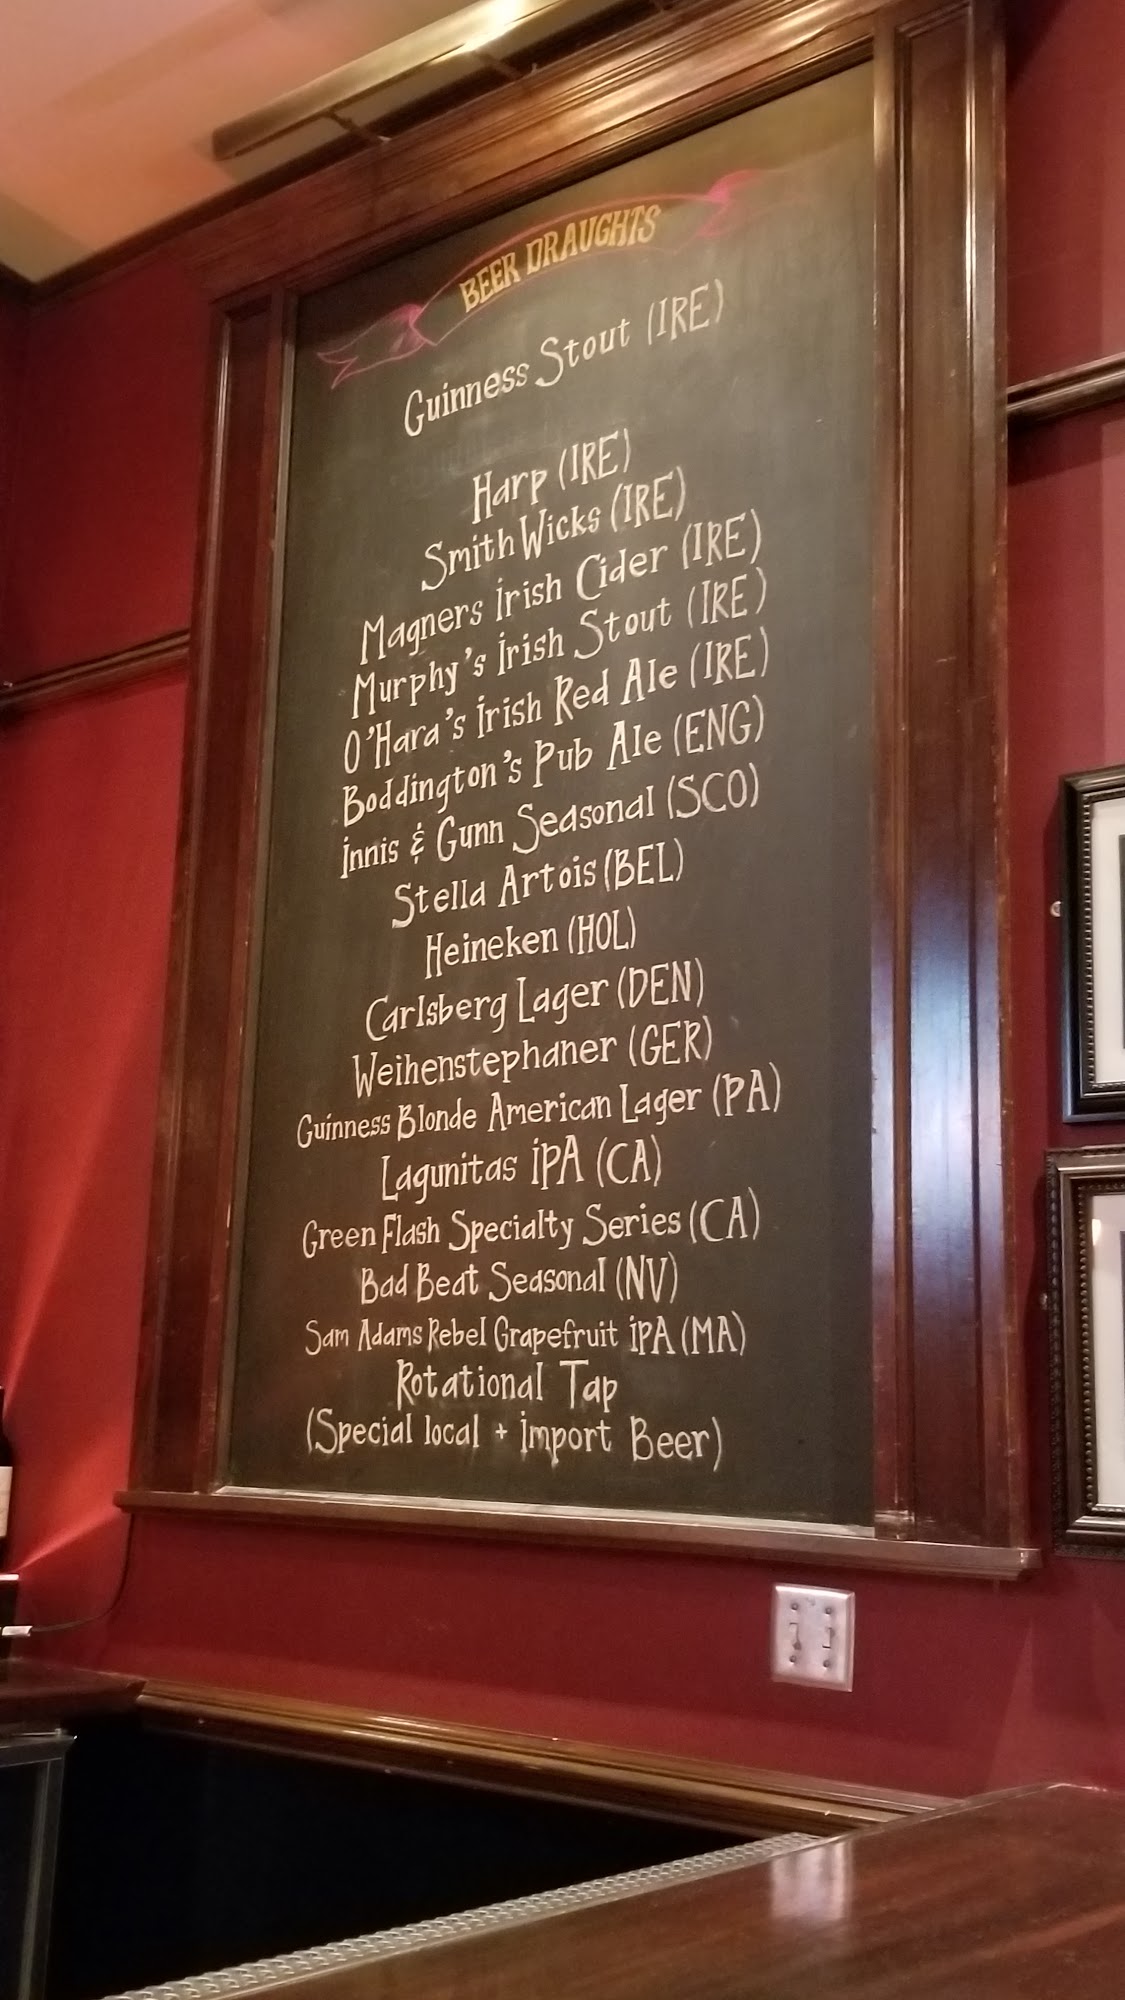 BEER DRAUGHTS
Guinness Stout (IRE)
Harp (IRE)
Smith Wicks (IRE)
Magners Irish Cider (IRE)
Murphy's Irish Stout (IRE)
O'Hara's Irish Red Ale (IRE)
Boddington's Pub Ale (ENG)
Innis & Gunn Seasonal (SCO)
Stella Artois (BEL)
Heineken (HOL)
Carlsberg Lager (DEN)
Weihenstephaner (GER)
Guinness Blonde American Lager (PA)
Lagunitas IPA (CA)
Green Flash Specialty Series (CA)
Bad Beat Seasonal (NV)
Sam Adams Rebel Grapefruit IPA (MA)
Rotational Tap
(Special local + Import Beer)